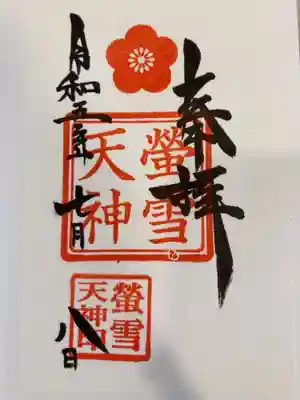 奉拝
螢雪
天神
螢雪
天神印
令和五年七月八日